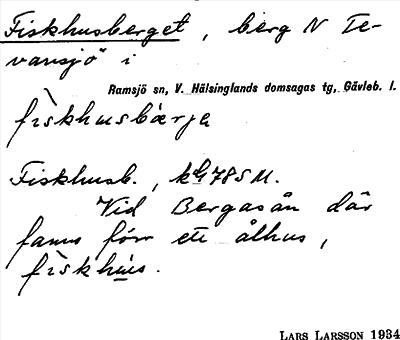 Fiskhusberget, berg N Te-
vansjö i
Ramsjö sn, V. Hälsinglands domsagas tg, Gävleb. l.
fiskhusbärje
Fiskhusb., 785 M.
Vid Bergasån där
fanns förr ett ålhus,
fiskhus.
LARS LARSSON 1934